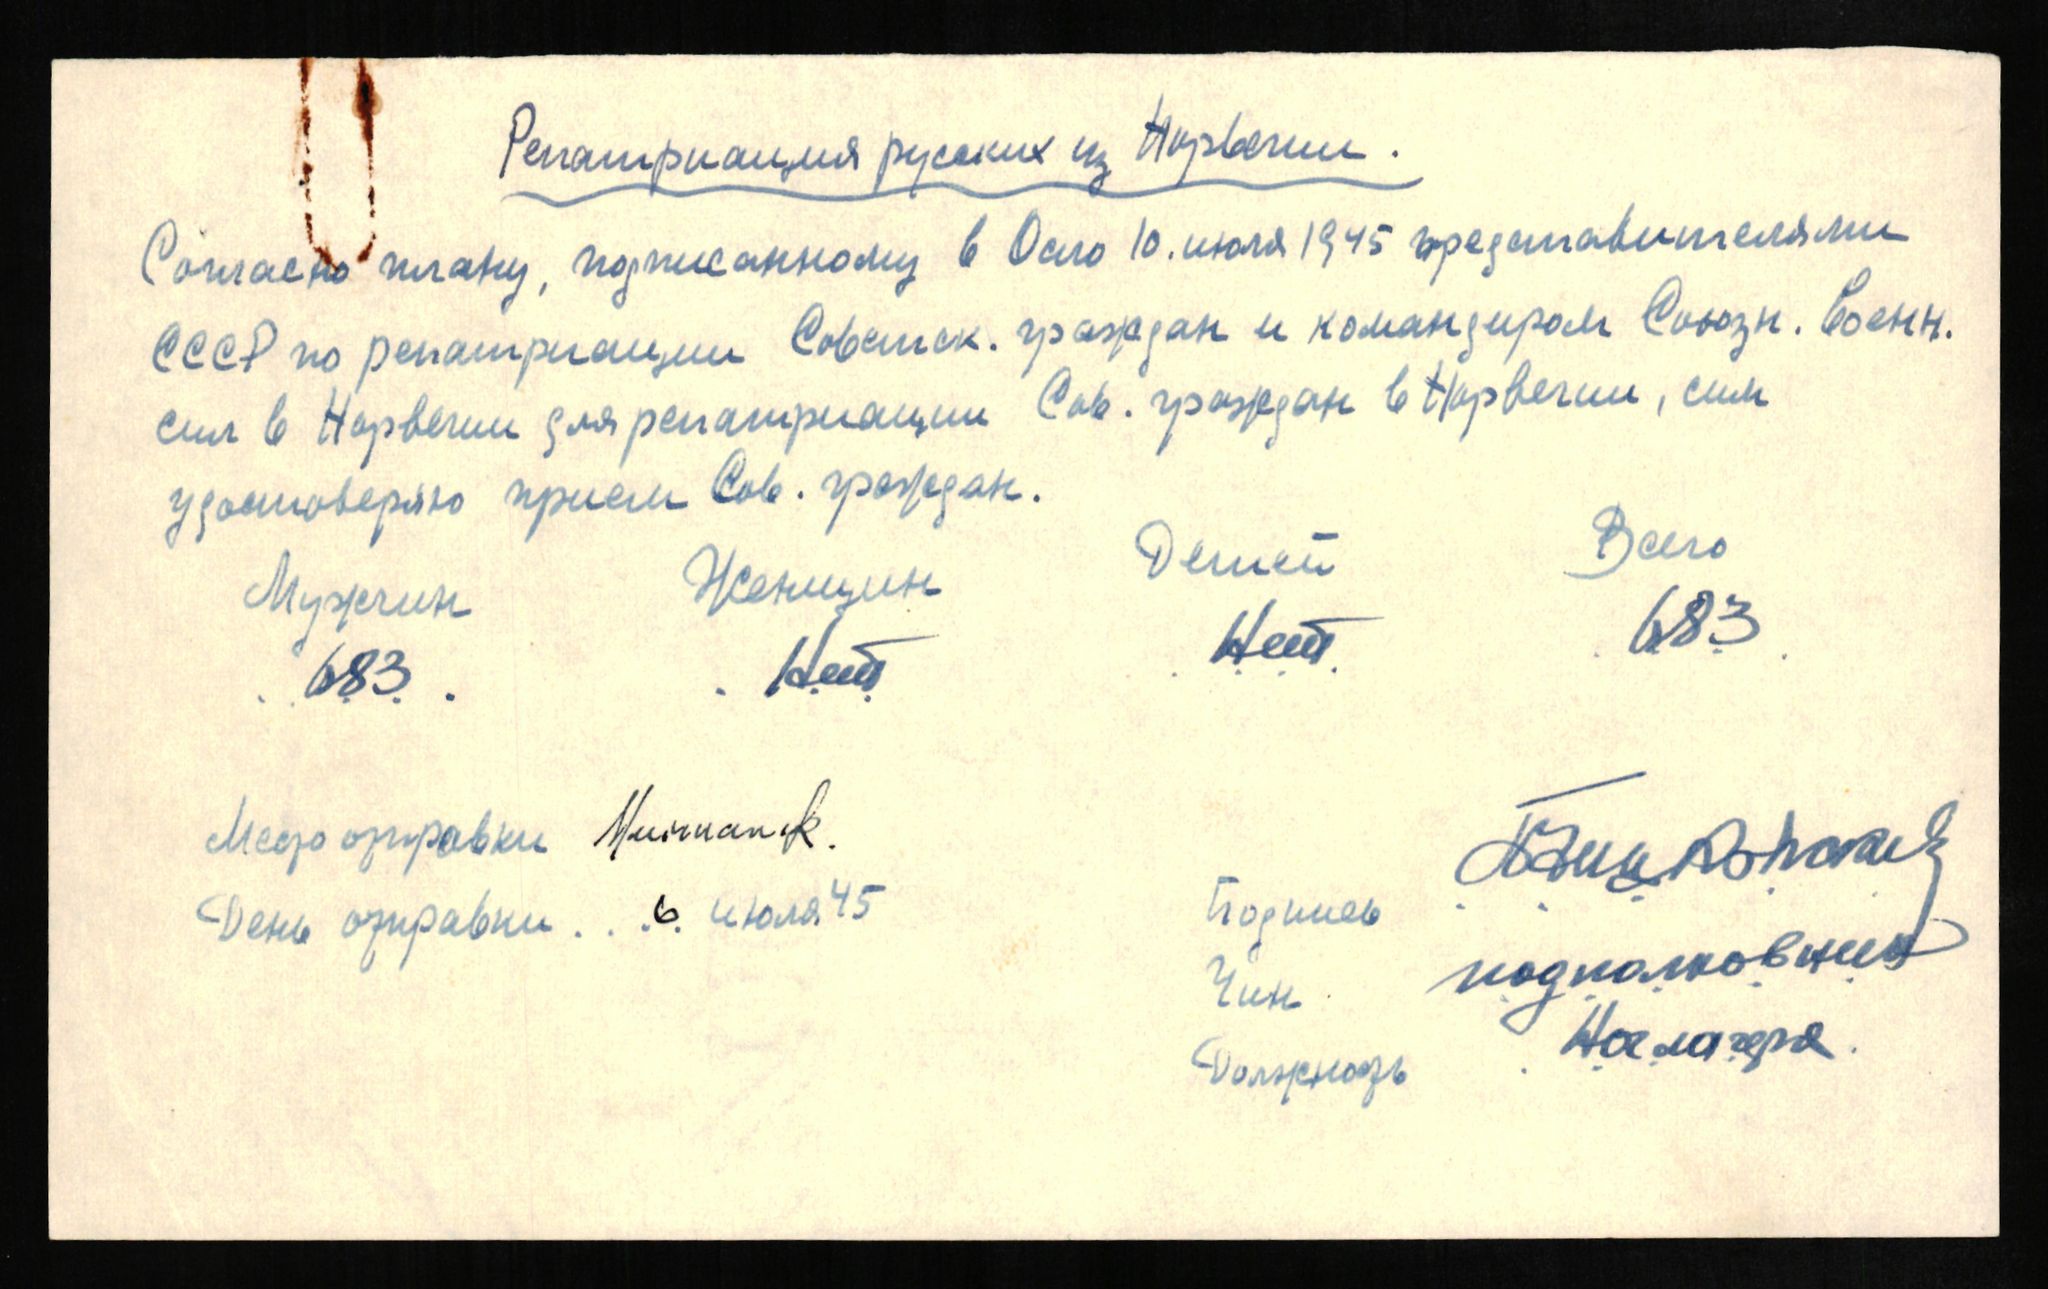 Репатриация русских из Норвегии.
Согласно плану, подписанному в Осло 10. июля 1945 представителями
СССР по репатриации Советск. граждан и командиром Союзн. Военн.
сил в Норвегии для репатриации Сов. граждан в Норвегии, сим
удостоверяю прием Сов. граждан.
Мужчин Женщин Детей Всего
683 Нет Нет 683
Место отправки Murmansk.
День отправки . . . 6 июля 45
Подпись
Чин подполковник
Должность лагеря